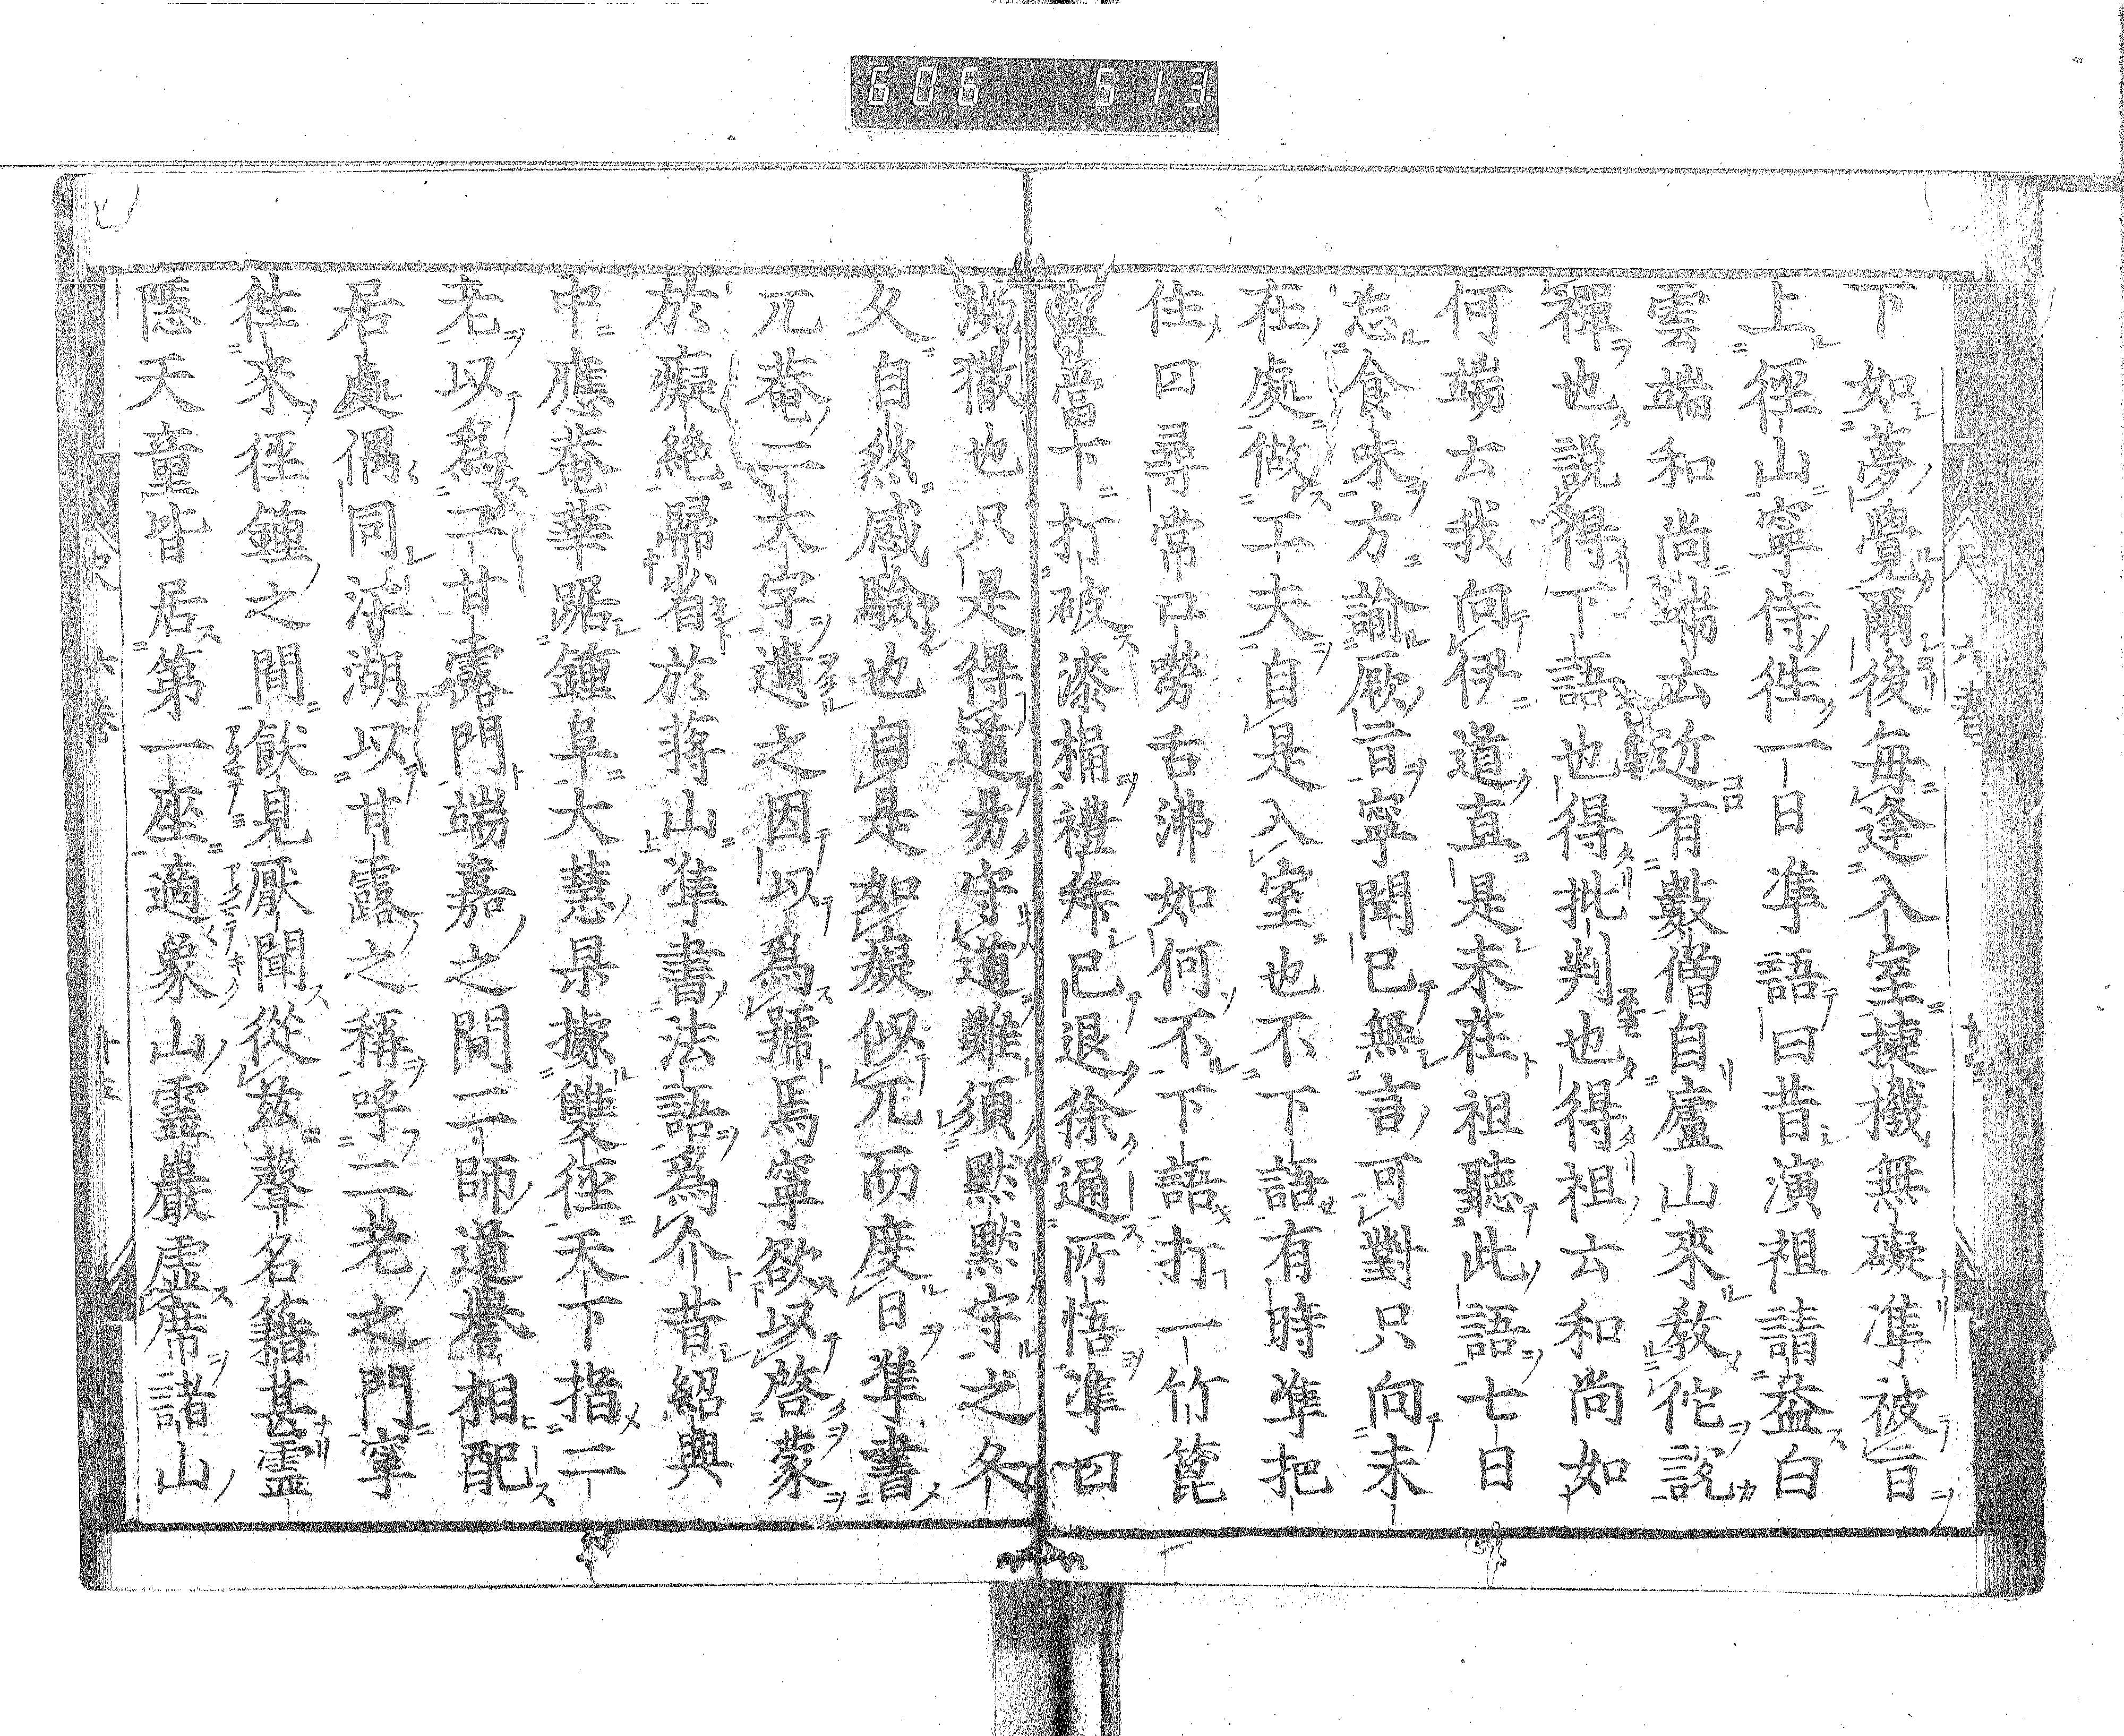 606 513
下如夢覺爾後毎逢入室捷機無礙凖被旨
上徑山寧侍徃一日凖語曰昔演祖請益白
雲端和尚端云近有數僧自廬山來教佗説
禪也説得下語也得批判也得祖云和尚如
何端云我向伊道直是未在祖聽此語七日
忘食味方諭厥旨寧聞已無言可對只向未
在處做工夫自是入室也不下語有時凖把
住曰尋常口嘮舌沸如何不下語打一竹篦
寧當下打破漆桶禮拜已退徐通所悟凖曰
也只是得道易守道難須黙黙守之久
久自然感驗也自是如癡似兀而度日凖書
兀菴二大字遺之因以為號焉寧欲以啓蒙
於癡絶歸省於蒋山凖書法語為介昔紹興
中應菴華踞鍾阜大慧杲據雙徑天下指二
老以為二甘露門端嘉之間二師道譽相配
居處偶同江湖以甘露之稱呼二老之門寧
徃來徑鍾之間飫見厭聞從茲聲名籍甚靈
隱天童皆居第一座適象山靈巖虚席諸山
六巻